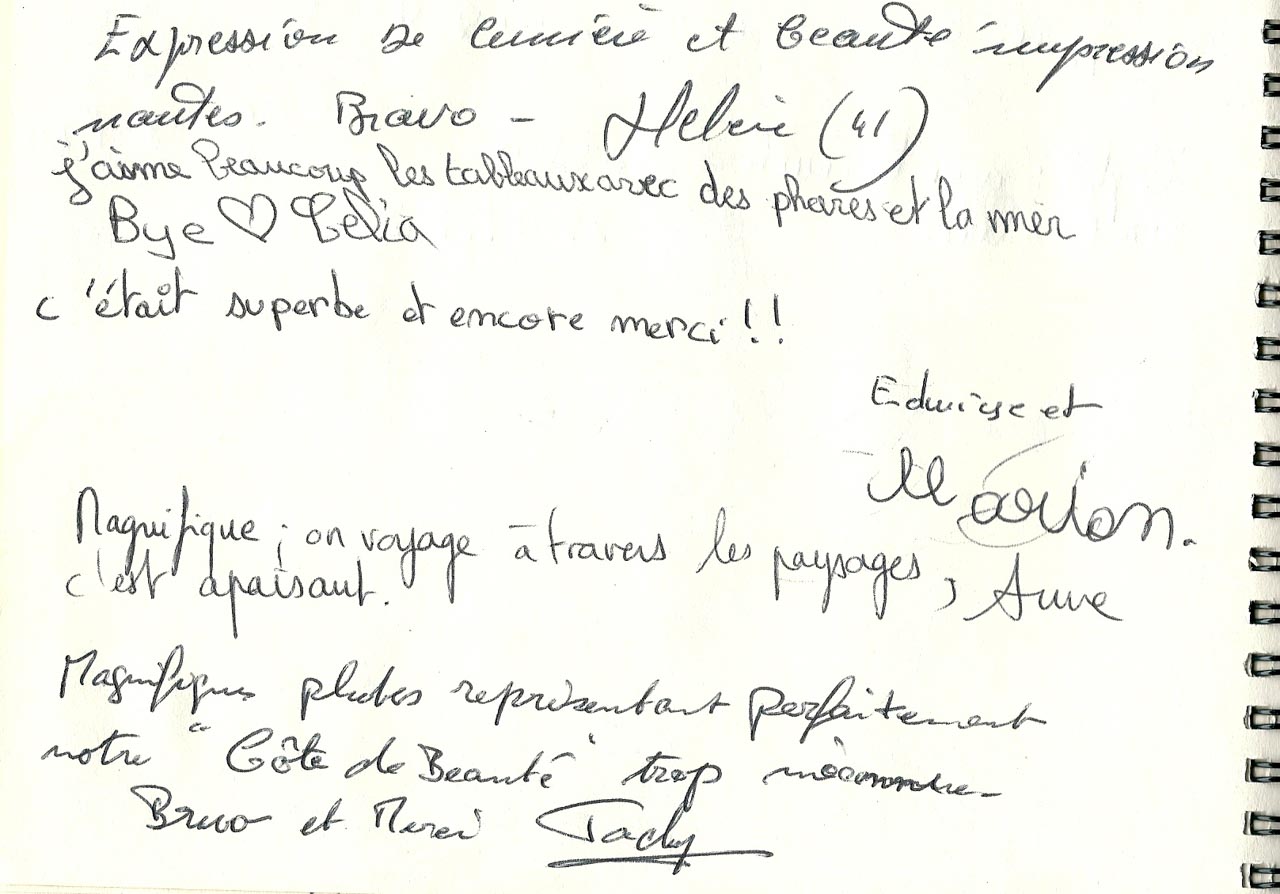 Expression de lumière et beauté impression
nantes. Bravo - Hélène (41)
j'aime beaucoup les tableaux avec des phares et la mer
Bye ♡ Célia
c'était superbe et encore merci !!
Edwige et
Marion.
Magnifique ; on voyage à travers les paysages,
c'est apaisant. Anne
Magnifiques photos représentant parfaitement
notre "Côte de Beauté" trop méconnue
Bravo et Merci